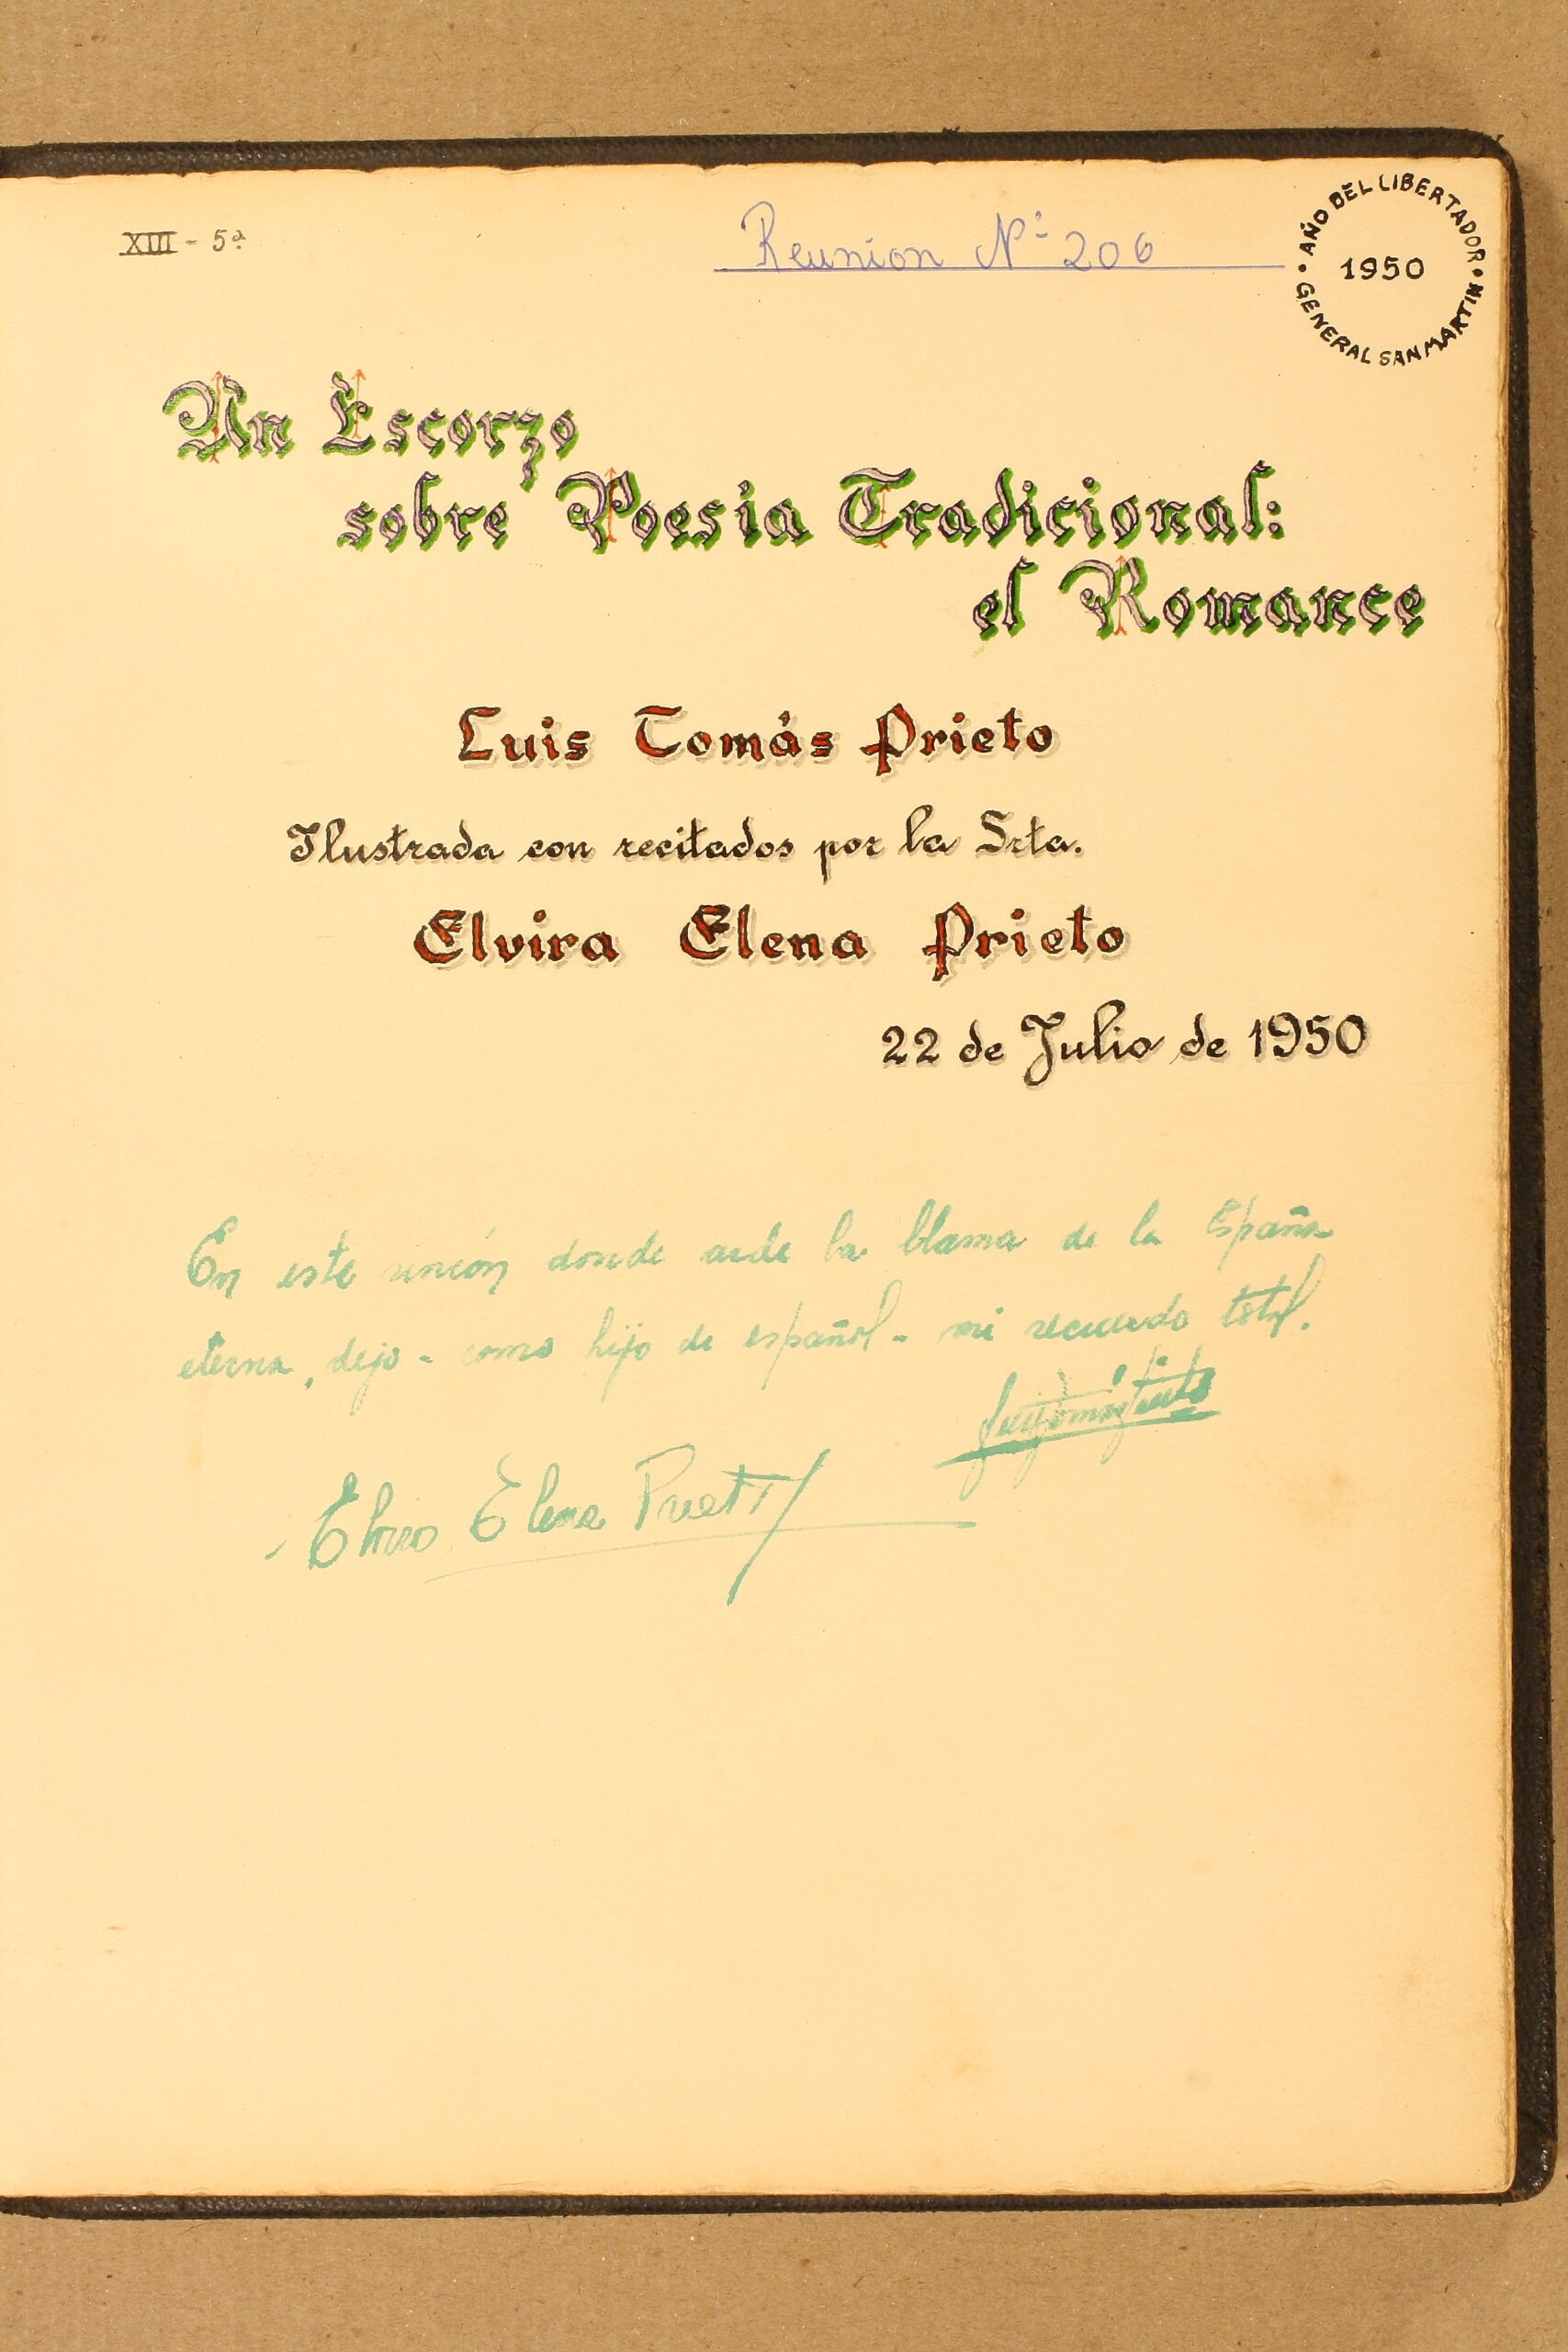 XIII - 5ª
Reunion Nº 206
• AÑO DEL LIBERTADOR • GENERAL SAN MARTIN
1950
Un Escorzo
sobre Poesia Tradicional:
el Romance
Luis Tomás Prieto
Ilustrada con recitados por la Srta.
Elvira Elena Prieto
22 de Julio de 1950
En este rincón donde arde la llama de la España
eterna, dejo - como hijo de español - mi recuerdo total.
Luis Tomás Prieto
Elvira Elena Prieto